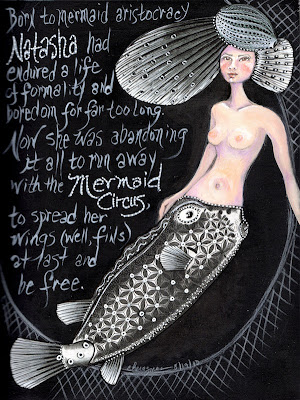 Born to mermaid aristocracy
Natasha had
endured a life
of formality and
boredom for far too long.
Now she was abandoning
it all to run away
with the Mermaid
Circus,
to spread her
wings (well, fins)
at last and
be free.